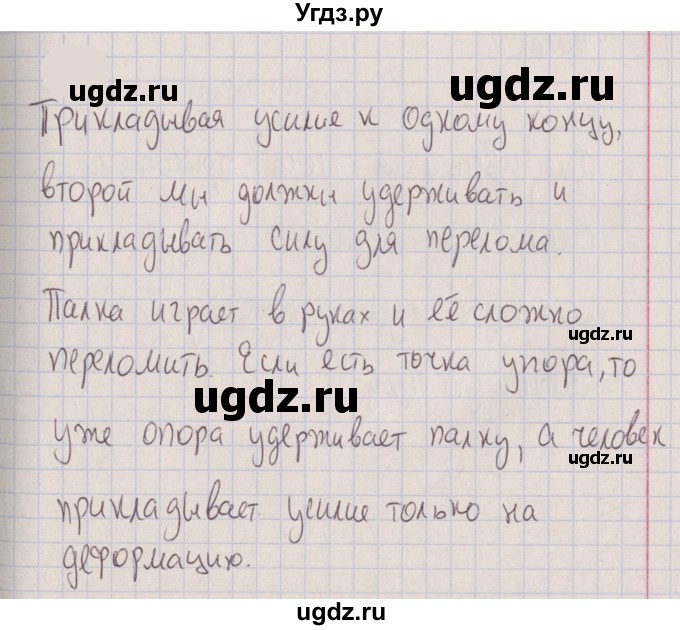 Угдз.ру
ugdz.ru
ugdz.ru
Прикладывая усилие к одному концу,
второй мы должны удерживать и
прикладывать силу для перелома.
Палка играет в руках и её сложно
ugdz.ru
переломить. Если есть точка упора, то
ugdz.ru
уже опора удерживает палку, а человек
ugdz.ru
прикладывает усилие только на
деформацию.
ugdz.ru